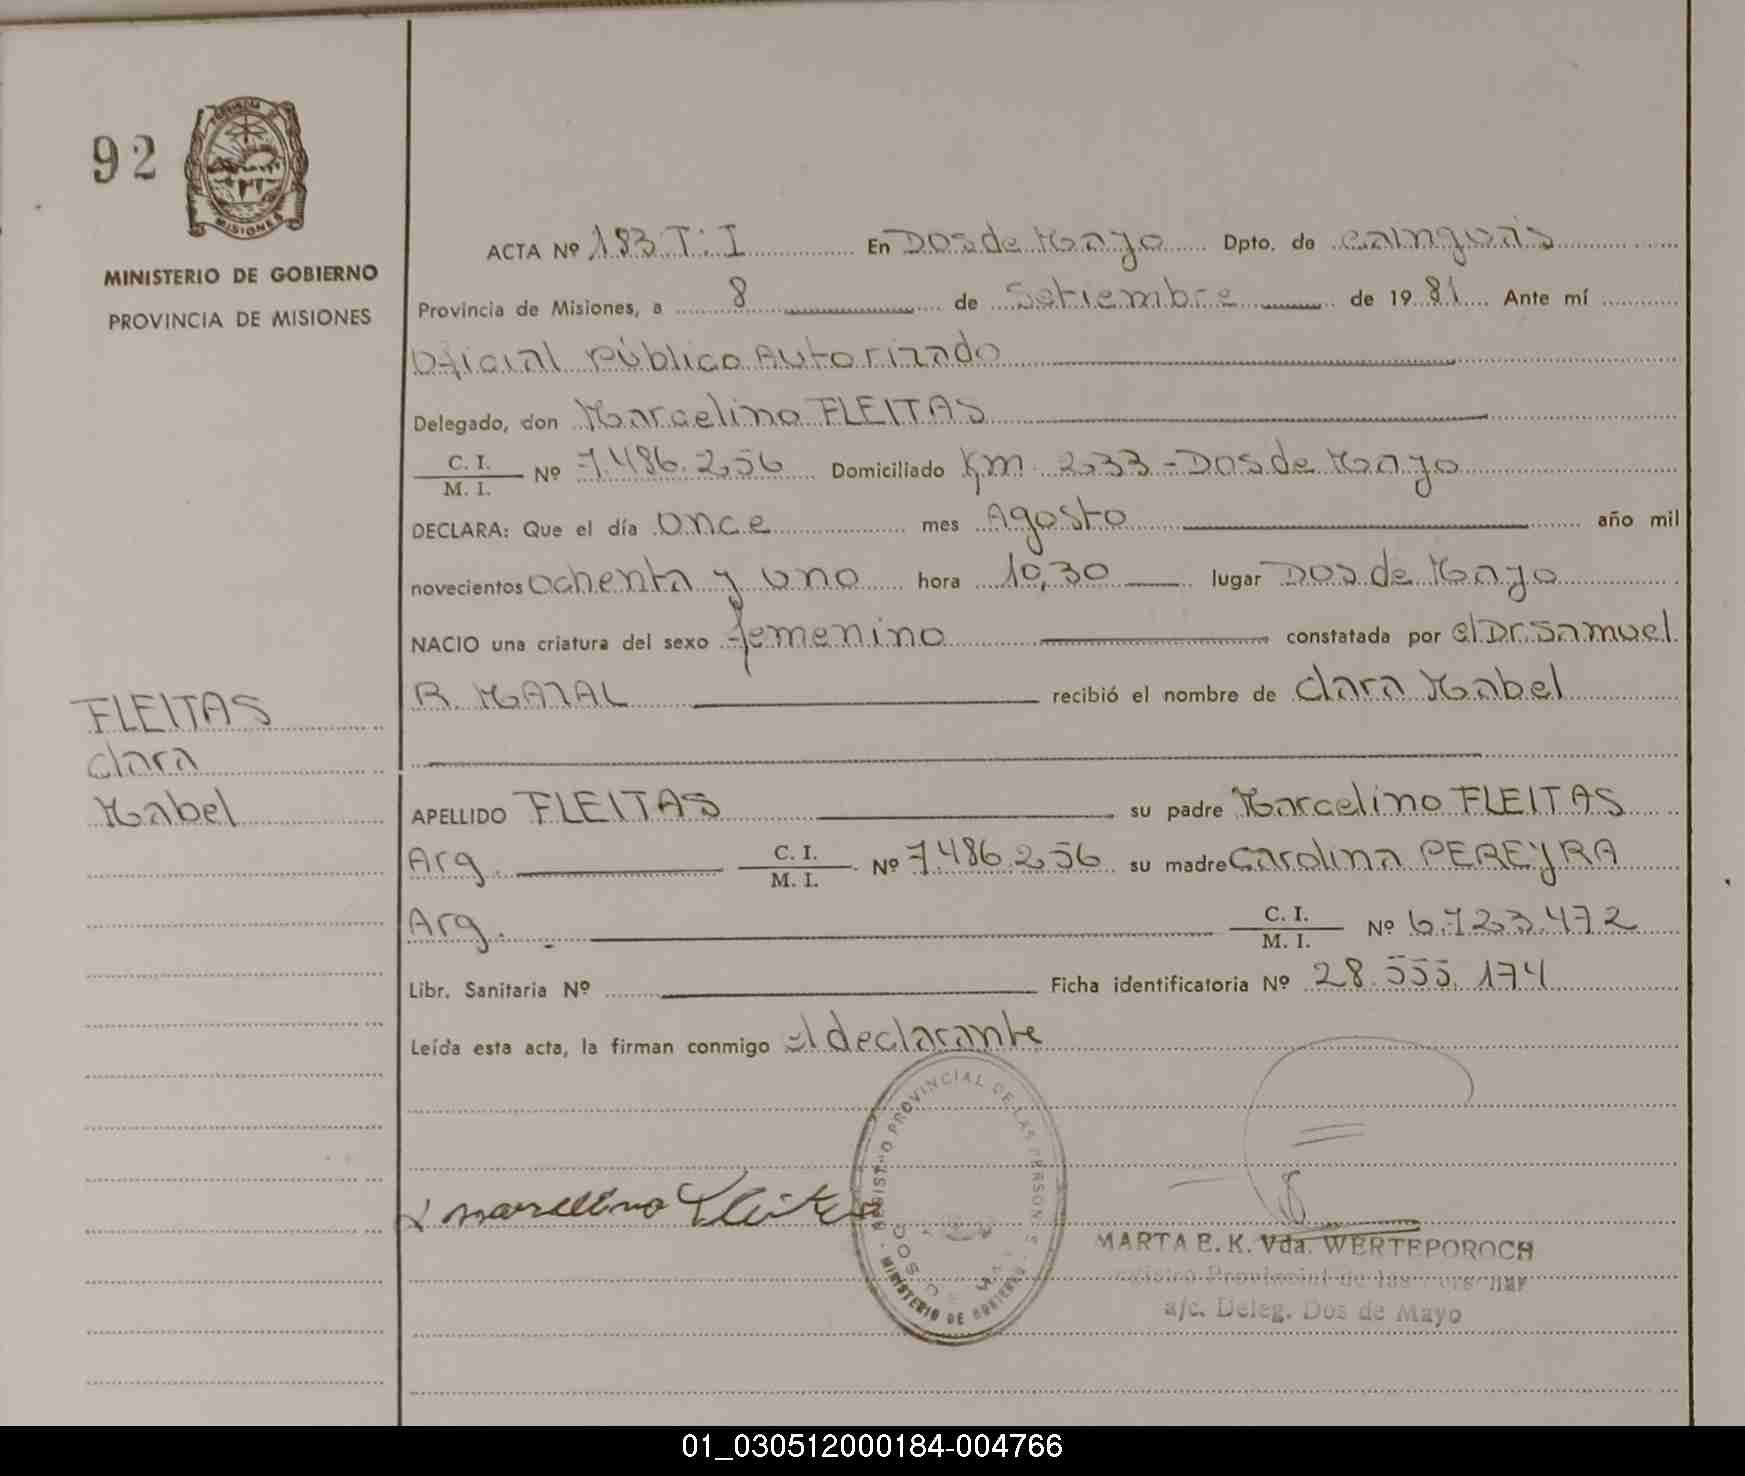 92
PROVINCIA DE
MISIONES
MINISTERIO DE GOBIERNO
PROVINCIA DE MISIONES
ACTA Nº 183 T: I En Dos de Mayo Dpto. de Cainguás
Provincia de Misiones, a 8 de Setiembre de 1981 Ante mí
Oficial Público Autorizado
Delegado, don Marcelino FLEITAS
C. I.
M. I. Nº 7.486.256 Domiciliado Km 233 - Dos de Mayo
DECLARA: Que el día once mes Agosto año mil
novecientos ochenta y uno hora 10,30 lugar Dos de Mayo
NACIO una criatura del sexo femenino constatada por el Dr. Samuel
R. MAZAL recibió el nombre de Clara Mabel
FLEITAS
Clara
Mabel
APELLIDO FLEITAS su padre Marcelino FLEITAS
Arg. C. I.
M. I. Nº 7.486.256 su madre Carolina PEREYRA
Arg. C. I.
M. I. Nº 6.723.472
Libr. Sanitaria Nº Ficha identificatoria Nº 28.555.174
Leída esta acta, la firman conmigo el declarante
marcelino Fleitas
REGISTRO PROVINCIAL DE LAS PERSONAS
MINISTERIO DE GOBIERNO
MARTA E. K. Vda. WERTEPOROCH
Registro Provincial de las Personas
a/c. Deleg. Dos de Mayo
01_030512000184-004766